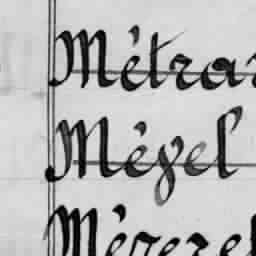 Métra
Méyel
Mézere